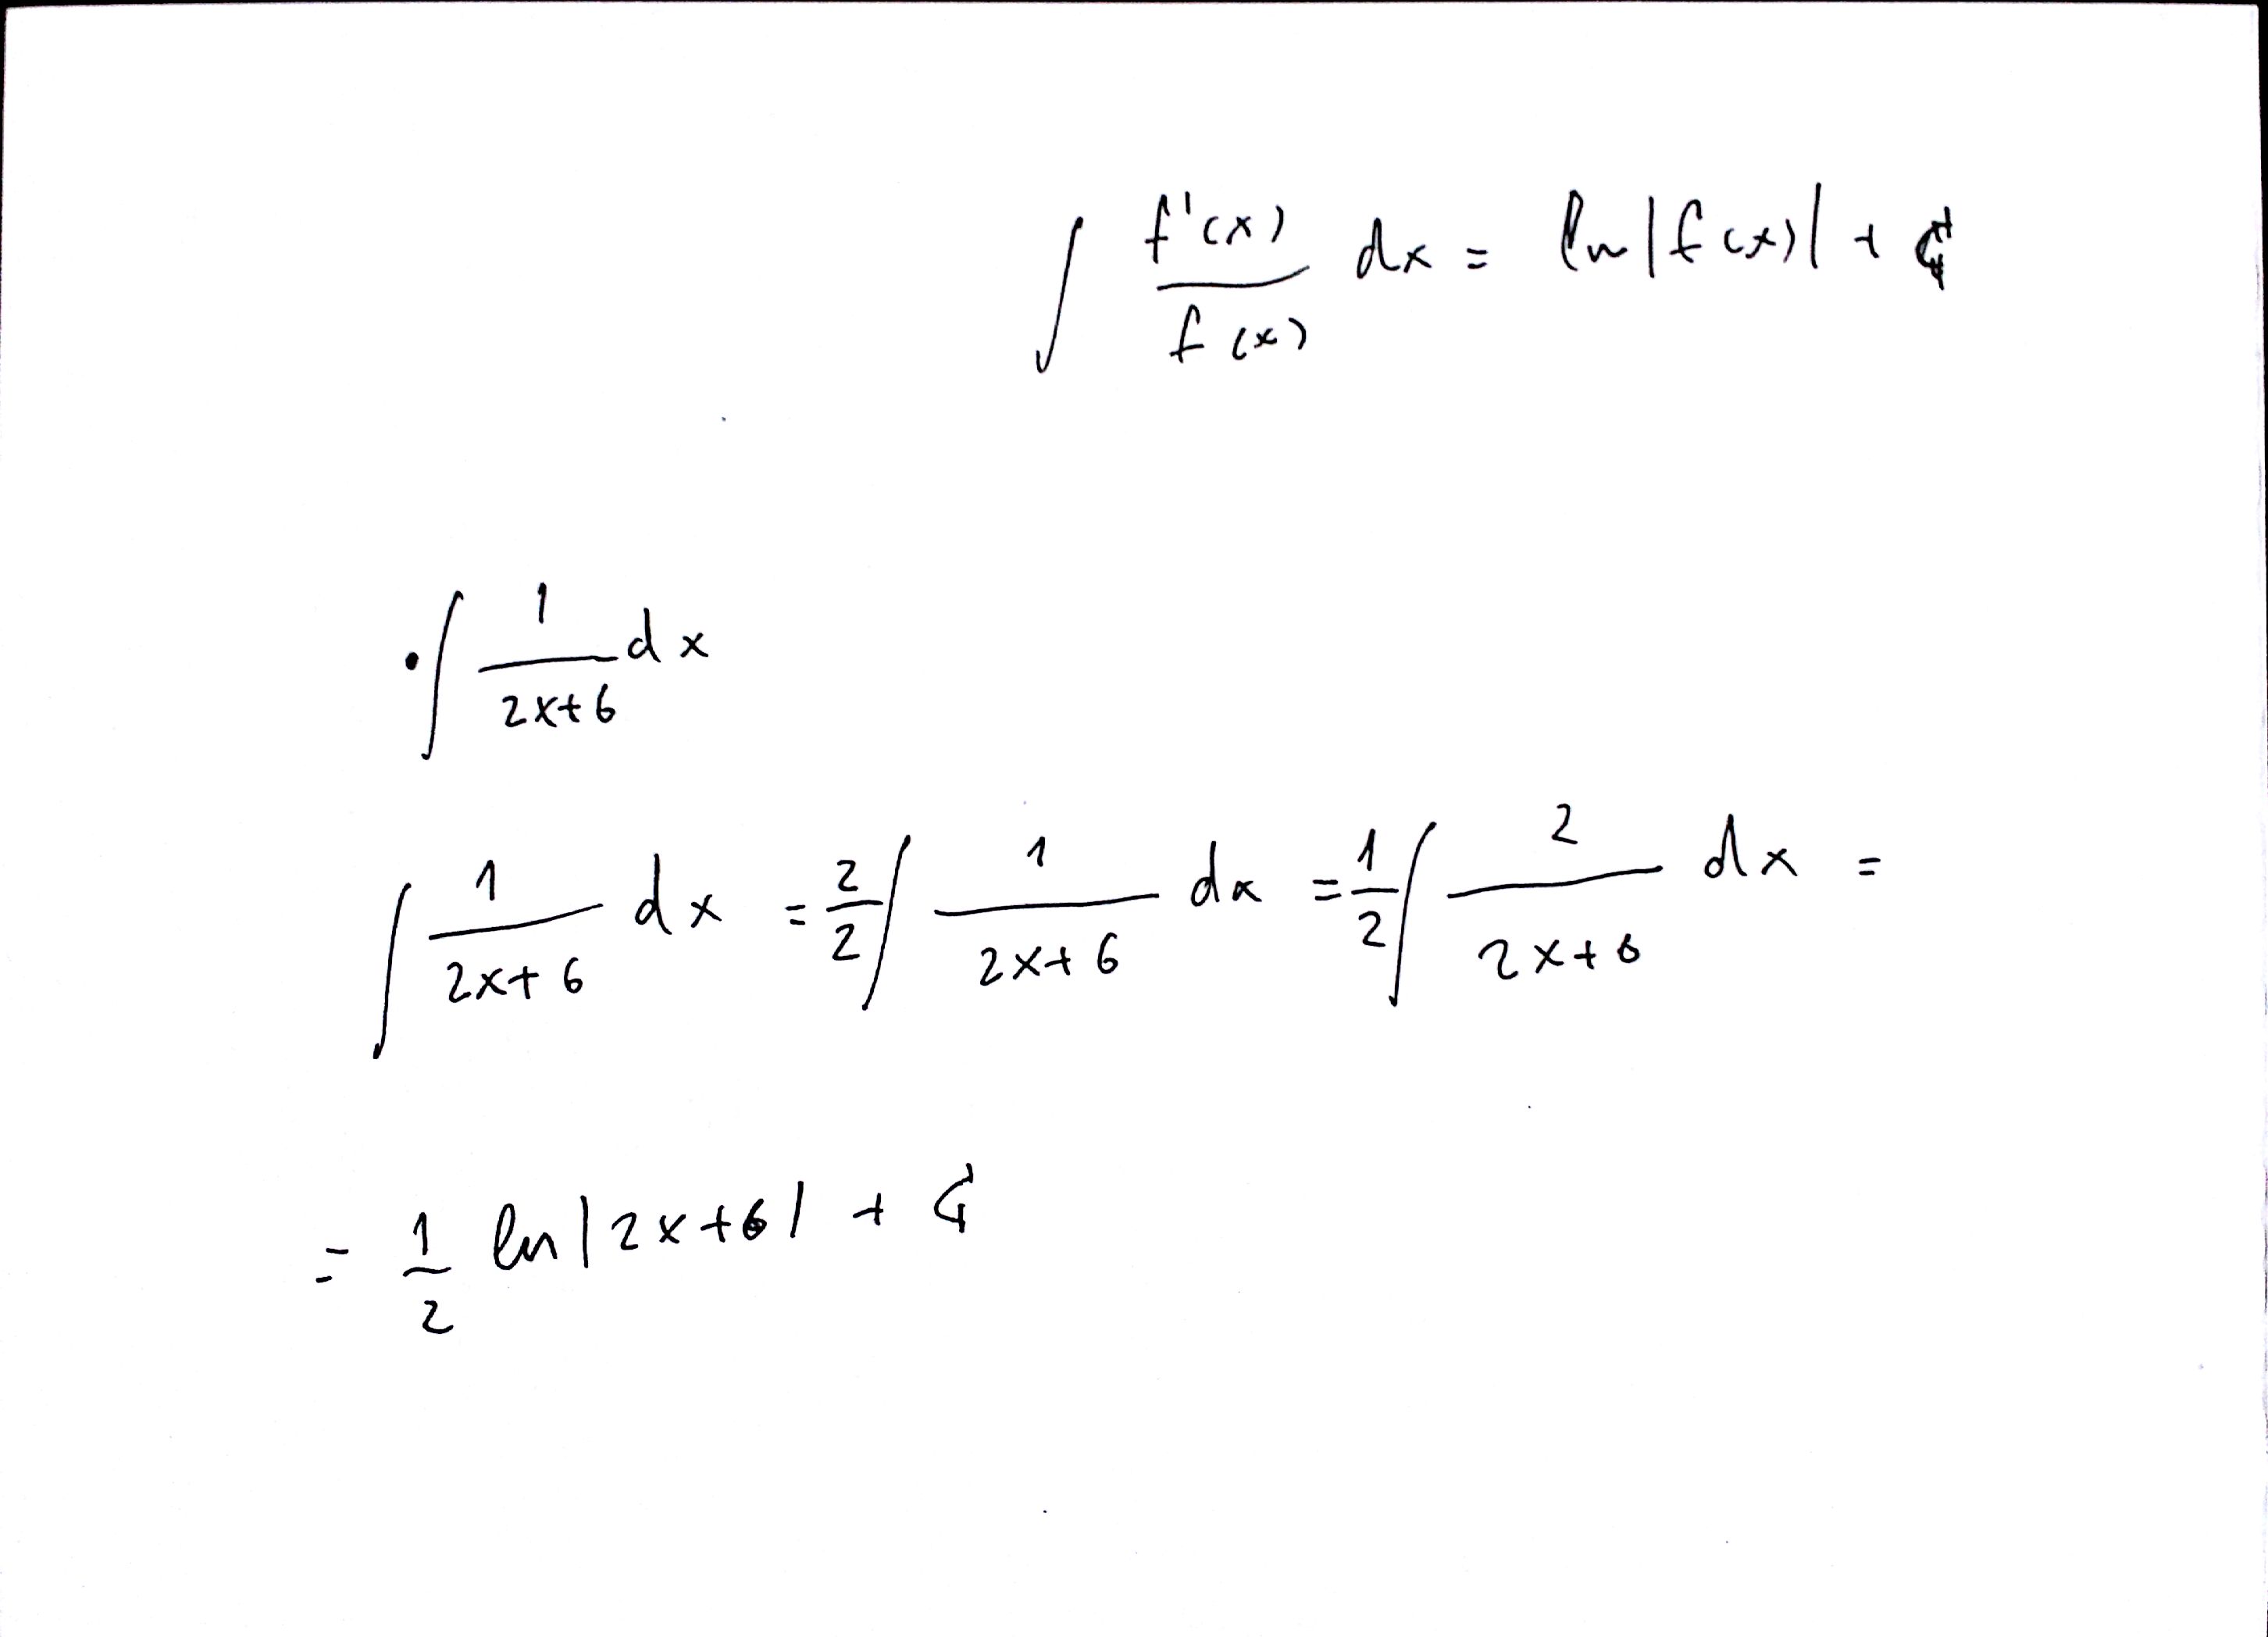 ∫ f'(x)/f(x) dx = ln|f(x)| + C
• ∫ 1/(2x+6) dx
∫ 1/(2x+6) dx = 2/2 ∫ 1/(2x+6) dx = 1/2 ∫ 2/(2x+6) dx =
= 1/2 ln|2x+6| + C